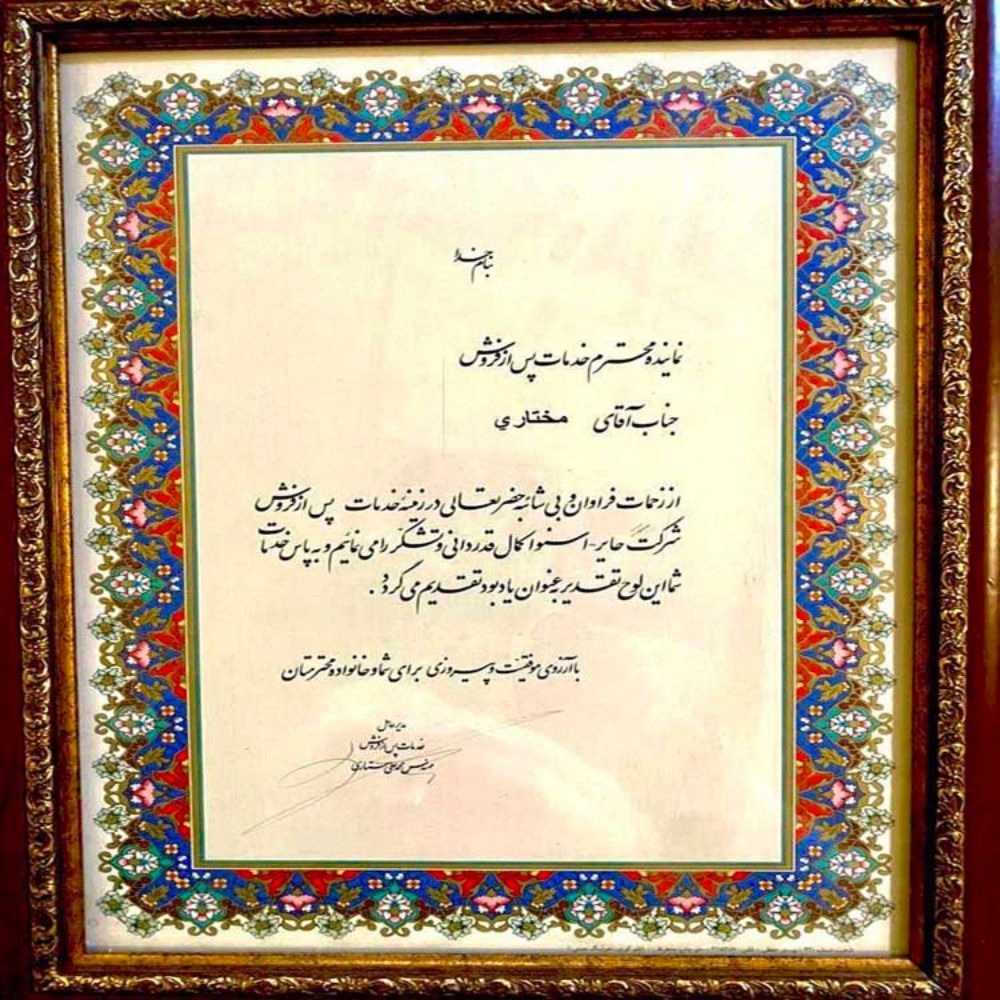 بنام خدا
نماینده محترم خدمات پس از فروش
جناب آقای مختاري
از زحمات فراوان و بی شائبه حضرتعالی در زمینه خدمات پس از فروش
شرکت حایر-اسنوا کمال قدردانی و تشکر را می نمائیم و به پاس خدمات
شما این لوح تقدیر به عنوان یادبود تقدیم می گردد.
با آرزوی موفقیت و پیروزی برای شما و خانواده محترمتان
مدیر عامل
خدمات پس از فروش
مهندس محمد علی